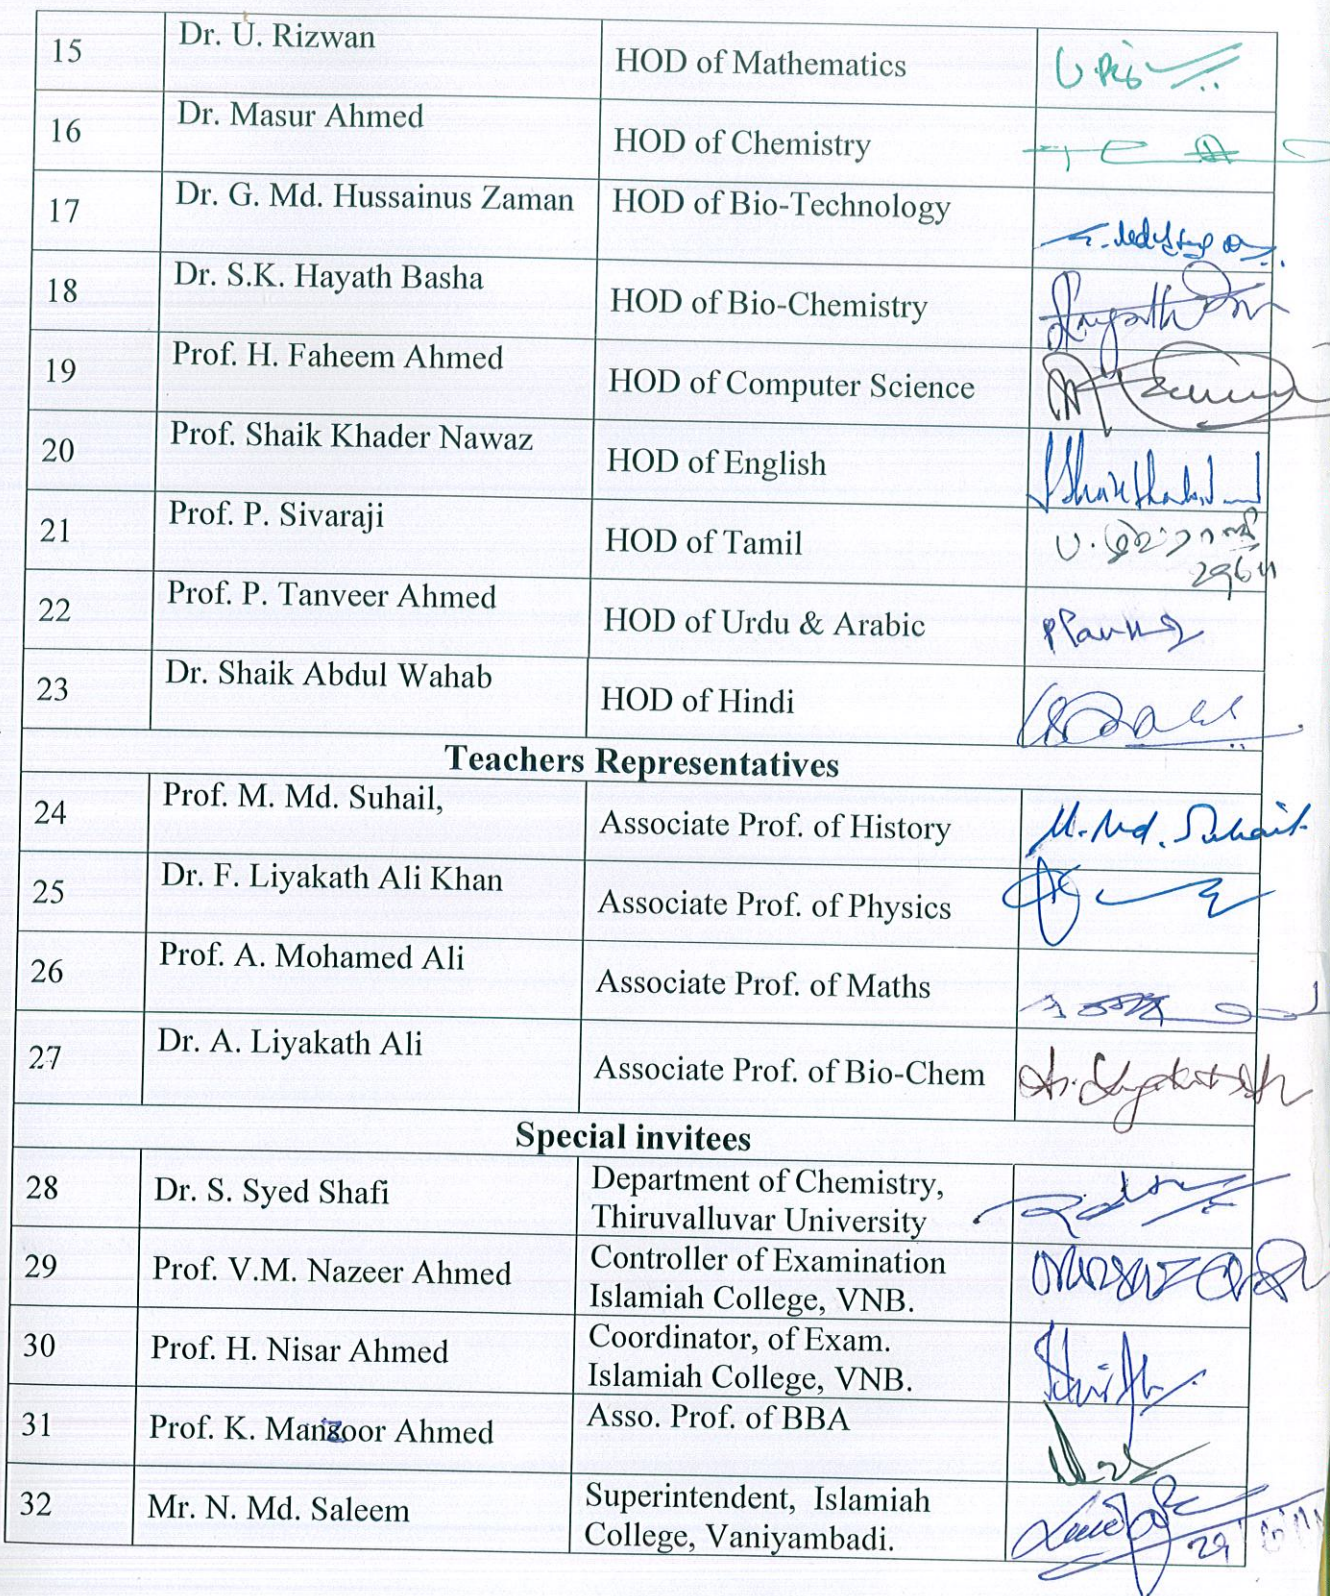 15 Dr. U. Rizwan HOD of Mathematics
16 Dr. Masur Ahmed HOD of Chemistry
17 Dr. G. Md. Hussainus Zaman HOD of Bio-Technology
18 Dr. S.K. Hayath Basha HOD of Bio-Chemistry
19 Prof. H. Faheem Ahmed HOD of Computer Science
20 Prof. Shaik Khader Nawaz HOD of English
21 Prof. P. Sivaraji HOD of Tamil
22 Prof. P. Tanveer Ahmed HOD of Urdu & Arabic
23 Dr. Shaik Abdul Wahab HOD of Hindi
Teachers Representatives
24 Prof. M. Md. Suhail, Associate Prof. of History M. Md. Suhail
25 Dr. F. Liyakath Ali Khan Associate Prof. of Physics
26 Prof. A. Mohamed Ali Associate Prof. of Maths
27 Dr. A. Liyakath Ali Associate Prof. of Bio-Chem
Special invitees
28 Dr. S. Syed Shafi Department of Chemistry,
Thiruvalluvar University
29 Prof. V.M. Nazeer Ahmed Controller of Examination
Islamiah College, VNB.
30 Prof. H. Nisar Ahmed Coordinator, of Exam.
Islamiah College, VNB.
31 Prof. K. Manzoor Ahmed Asso. Prof. of BBA
32 Mr. N. Md. Saleem Superintendent, Islamiah
College, Vaniyambadi.